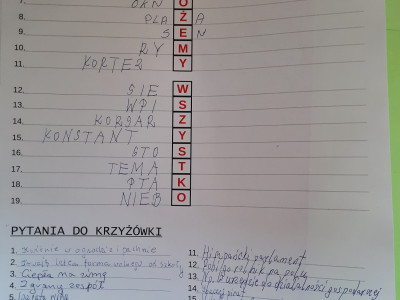 7. OKN O
8. PLA Ż A
9. S E N
10. RY M
11. KORTEZ Y
12. SIE W
13. WPI S
14. KORSAR Z
15. KONSTANT Y
16. STO S
17. TEMA T
18. PTA K
19. NIEB O
PYTANIA DO KRZYŻÓWKI
1. w ogrodzie i pachnie
2. letnia forma od szkoły
3. Ciepła na zimę
4. Zgrany zespół
11. Hiszpański parlament
12. Robi go rolnik na polu
13. Np. w urzędzie do działalności gospodarczej
14. pirat
15.